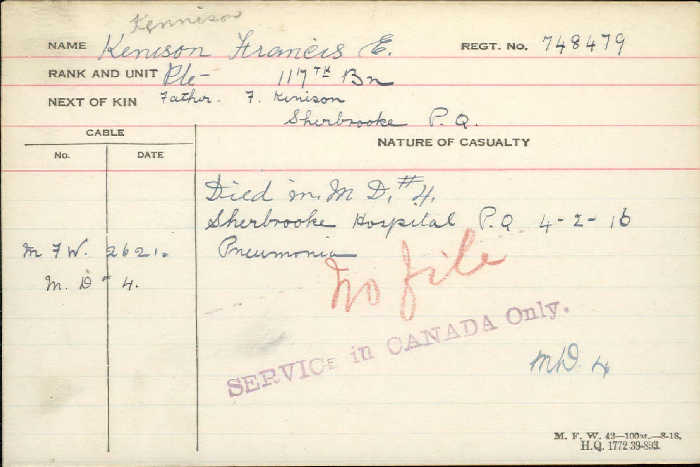 Kennison
NAME Kenison Francis E. REGT. No. 748479
RANK AND UNIT Pte- 117TH Bn
NEXT OF KIN Father. F. Kenison
Sherbrooke P.Q.
CABLE
NATURE OF CASUALTY
No. DATE
Died in M D, #4.
Sherbrooke Hospital P.Q 4-2-16
M F W. 2621. Pneumonia
M. D # 4.
No file
SERVICE in CANADA Only.
MD. 4
M. F. W. 42—100M.—8-18.
H.Q. 1772-39-893.